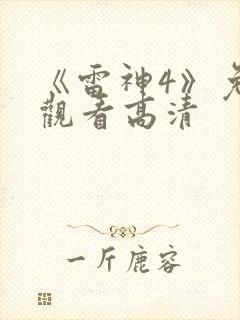 《雷神4》免
觀看高清
一斤鹿容